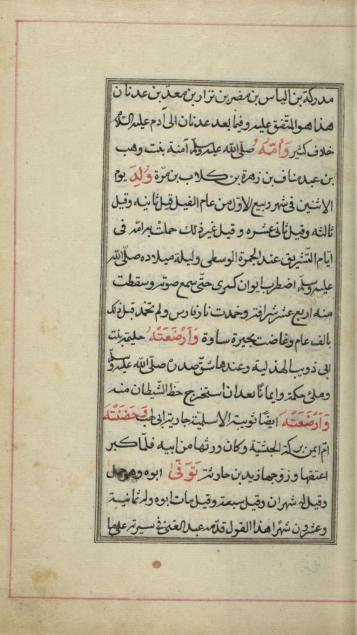 مدركة بن الياس بن مضر بن نزار بن معد بن عدنان
هذا هو المتفق عليه وفيما بعد عدنان الى آدم عليه السلام
خلاف كثير وَأُمُّهُ صلى الله عليه وسلم آمنة بنت وهب
بن عبد مناف بن زهرة بن كلاب بن مرّة وُلِدَ يوم
الاثنين فى شهر ربيع الاوّل من عام الفيل قيل ثانيه وقيل
ثالثه وقيل ثانى عشره وقيل غير ذلك حملت به امّه فى
ايام التشريق عند الجمرة الوسطى وليلة ميلاده صلى الله
عليه وسلم اضطرب ايوان كسرى حتى سمع صوته وسقطت
منه اربع عشر شرافة وخمدت نار فارس ولم تخمد قبل ذلك
بالف عام وغاضت بحيرة ساوة وَأَرْضَعَتْهُ حليمة بنت
ابى ذويب الهذلية وعندها شق صدره صلى الله عليه وسلم
وملئ حكمة وايمانا بعد ان استخرج حظ الشيطان منه
وَأَرْضَعَتْهُ ايضا ثويبة الاسلمية جارية ابى لهب وَحَضَنَتْهُ
امّ ايمن بركة الحبشية وكان ورثها من ابيه فلمّا كبر
اعتقها وزوجها زيد بن حارثة تُوُفِّىَ ابوه وهو حمل
وقيل له شهران وقيل سبعة وقيل مات ابوه وله ثمانية
وعشرون شهرا هذا القول قدمه عبد الغنى فى سيرته على ما